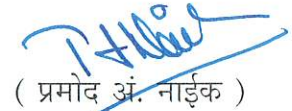 ( प्रमोद अं. नाईक )